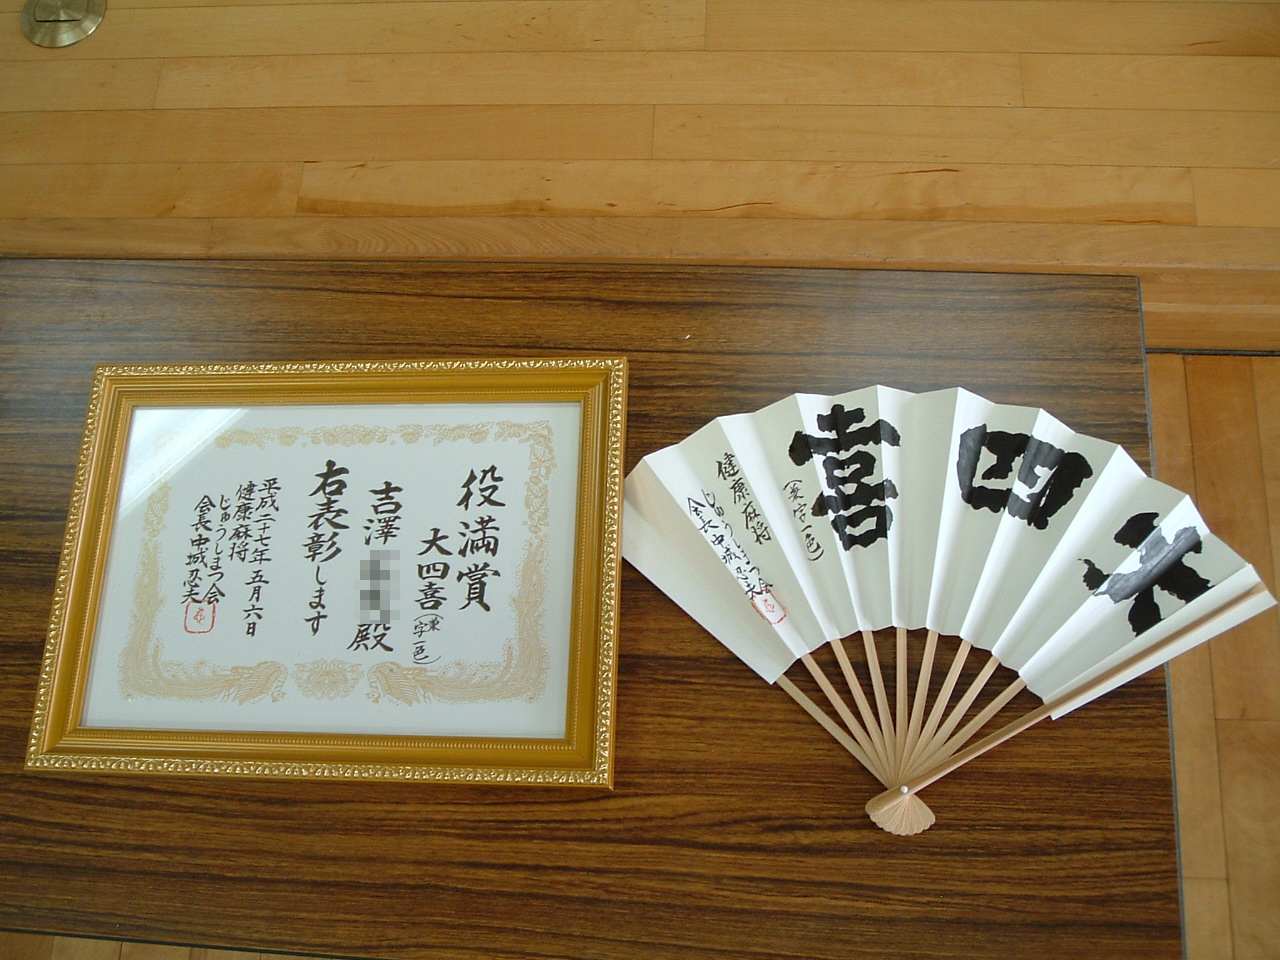 役満賞
大四喜
字一色)
吉澤
殿
右表彰します
平成二十七年五月六日
健康麻将
じゅうしまつ会
会長中城忍夫
大四喜
字一色)
健康麻将
じゅうしまつ会
会長中城忍夫